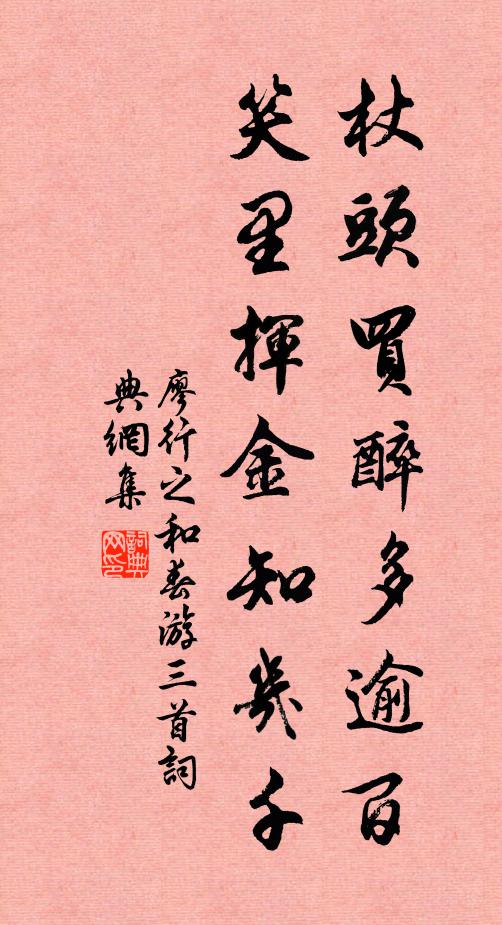 杖頭買醉多逾百
笑里揮金知幾千
廖行之和春游三首詞
典網集
詞典网印